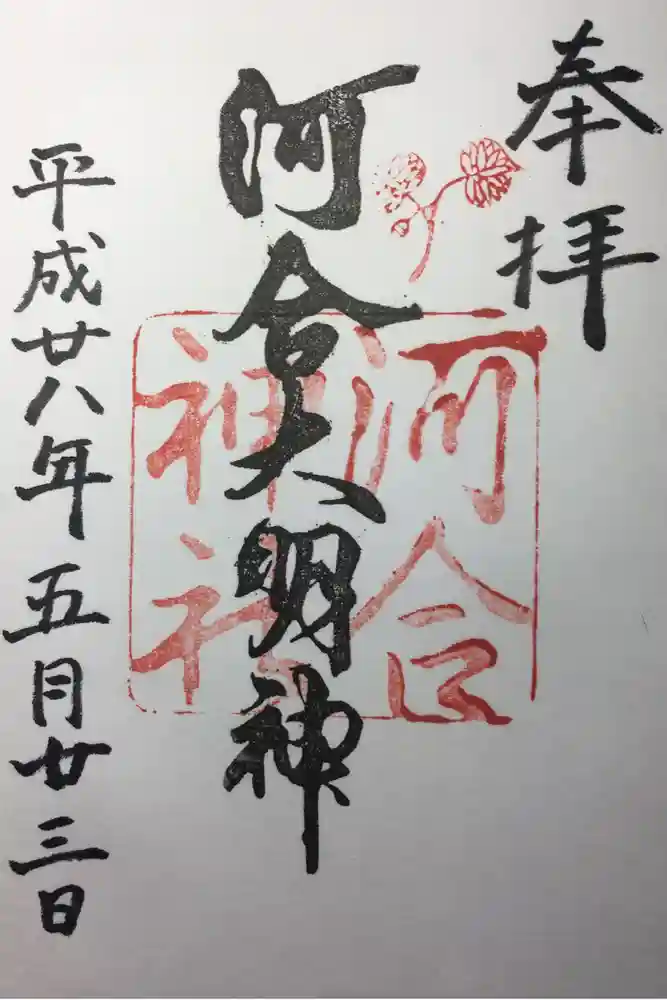 奉拝
河合大明神
河合
神社
平成廿八年五月廿三日